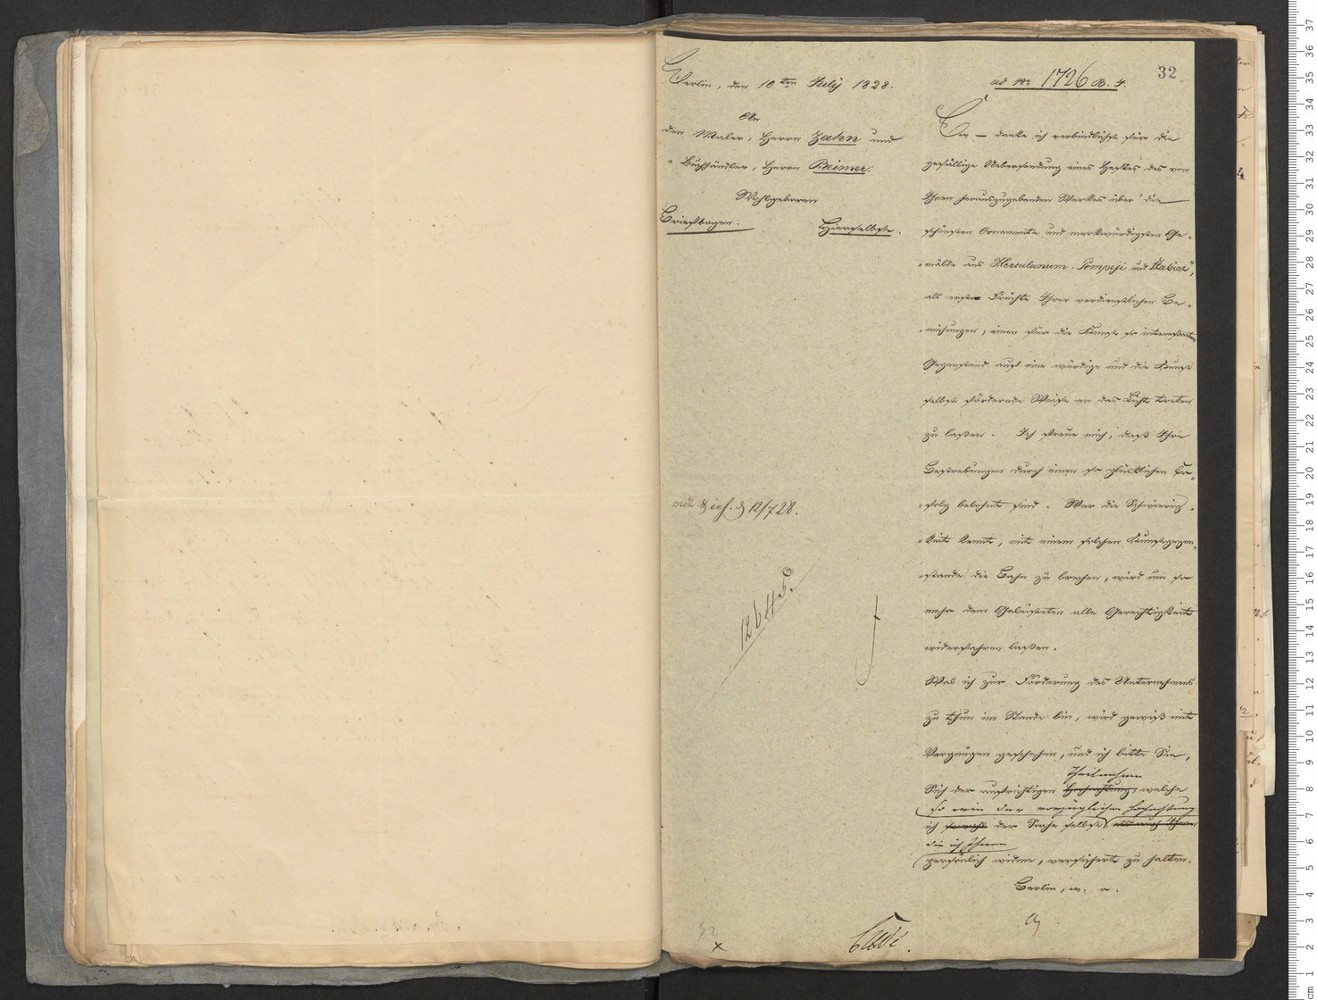 32
Berlin, den 10ten July 1828.
An
den Maler, Herrn Zahn und
" Buchhändler, Herrn Reimer.
Wohlgeboren
Briefbogen.
Hierselbst.
mit
12/7 28.
ad No 1726 B. J.
Ew – danke ich verbindlichst für die
gefällige Uebersendung eines Heftes des von
Ihnen herauszugebenden Werkes über "die
schönsten Ornamente und merkwürdigsten Ge-
mälde aus Herculanum, Pompeji und Stabiae",
als erste Früchte Ihrer verdienstlichen Be-
mühungen, einen für die Kunst so interessanten
Gegenstand auf eine würdige und die Kunst
selbst fördernde Weise an das Licht treten
zu lassen. Ich freue mich, daß Ihre
Bestrebungen durch einen so glücklichen Er-
folg belohnt sind. Wer die Schwierig-
keit kennt, mit einem solchen Kunstgegen-
stande die Bahn zu brechen, wird um so
mehr dem Geleisteten alle Gerechtigkeit
widerfahren lassen.
Was ich zur Förderung des Unternehmens
zu thun im Stande bin, wird gewiß mit
Vergnügen geschehen, und ich bitte Sie,
Theilnahme
Sich der aufrichtigen Hochachtung, welche
so wie der vorzüglichen Hochachtung
ich sowohl der Sache selbst als auch Ihnen
die ich Ihnen
persönlich widme, versichert zu halten.
Berlin, w. o.